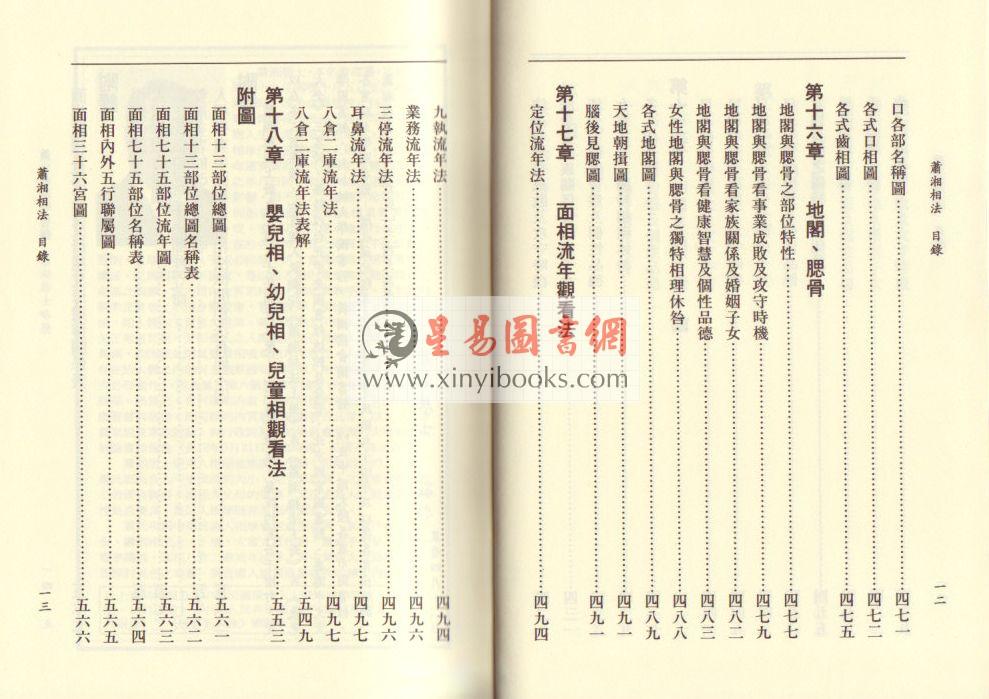 蕭湘相法　目錄
一二
口各部名稱圖……四七一
各式口相圖……四七二
各式齒相圖……四七五
第十六章　地閣、腮骨
地閣與腮骨之部位特性……四七七
地閣與腮骨看事業成敗及攻守時機……四七九
地閣與腮骨看家族關係及婚姻子女……四八二
地閣與腮骨看健康智慧及個性品德……四八三
女性地閣與腮骨之獨特相理休咎……四八八
各式地閣圖……四八九
天地朝揖圖……四九一
腦後見腮圖……四九一
第十七章　面相流年觀看法
定位流年法……四九四
九執流年法……四九四
業務流年法……四九六
三停流年法……四九六
耳鼻流年法……四九七
八倉二庫流年法……四九七
八倉二庫流年法表解……五四九
第十八章　嬰兒相、幼兒相、兒童相觀看法……五五三
附圖
面相十三部位總圖……五六一
面相十三部位總圖名稱表……五六二
面相七十五部位流年圖……五六三
面相七十五部位名稱表……五六四
面相內外五行聯屬圖……五六五
面相三十六宮圖……五六六
蕭湘相法　目錄
一三
星易圖書網
www.xinyibooks.com